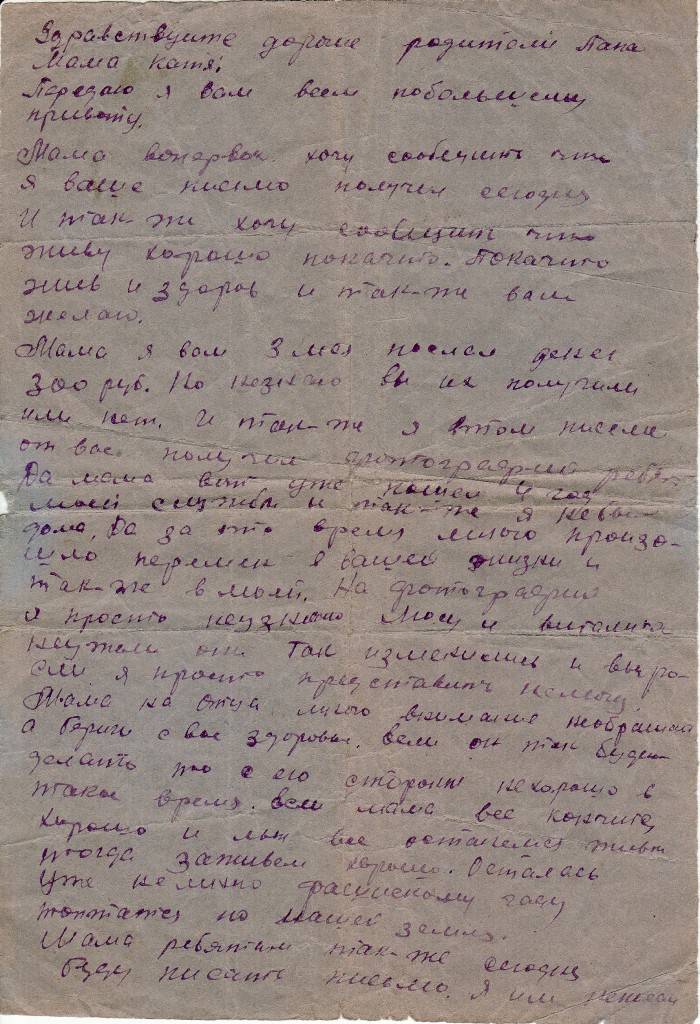 Здравствуите дорогие родители Папа
Мама Катя!
Передаю я вам всем побольшему
привету.
Мама вопервох хочу сообщить что
я ваше письмо получил сегодня
И так-же хочу сообщить что
живу хорошо покачито. Покачито
жив и здоров и так-же вам
желаю.
Мама я вам 3 мая послал денег
300 руб. Но незнаю вы их получили
или нет. И так-же я этом писме
от вас получил фотографии ребят
Да мама вот уже пошел 4 год
моей службы и так-же я небыл
дома, Да за это время много произо-
шло перемен в вашей жизни и
так-же в моей. На фотографии
я просто неузнаю Мосу и виталика
неужели они так изменились и выро-
сли я просто представить немогу.
Мама на отца много внимание необращай
а береги свое здоровье. если он так будет
делать то с его стороне нехорошо в
такое время. если мама все кончится
хорошо и мы все останемся живы
тогда заживем хорошо. Осталась
уже немного фашискому гаду
топтатся по нашей земле.
Мама ребятам так-же сегодня
буду писать письмо. Я им